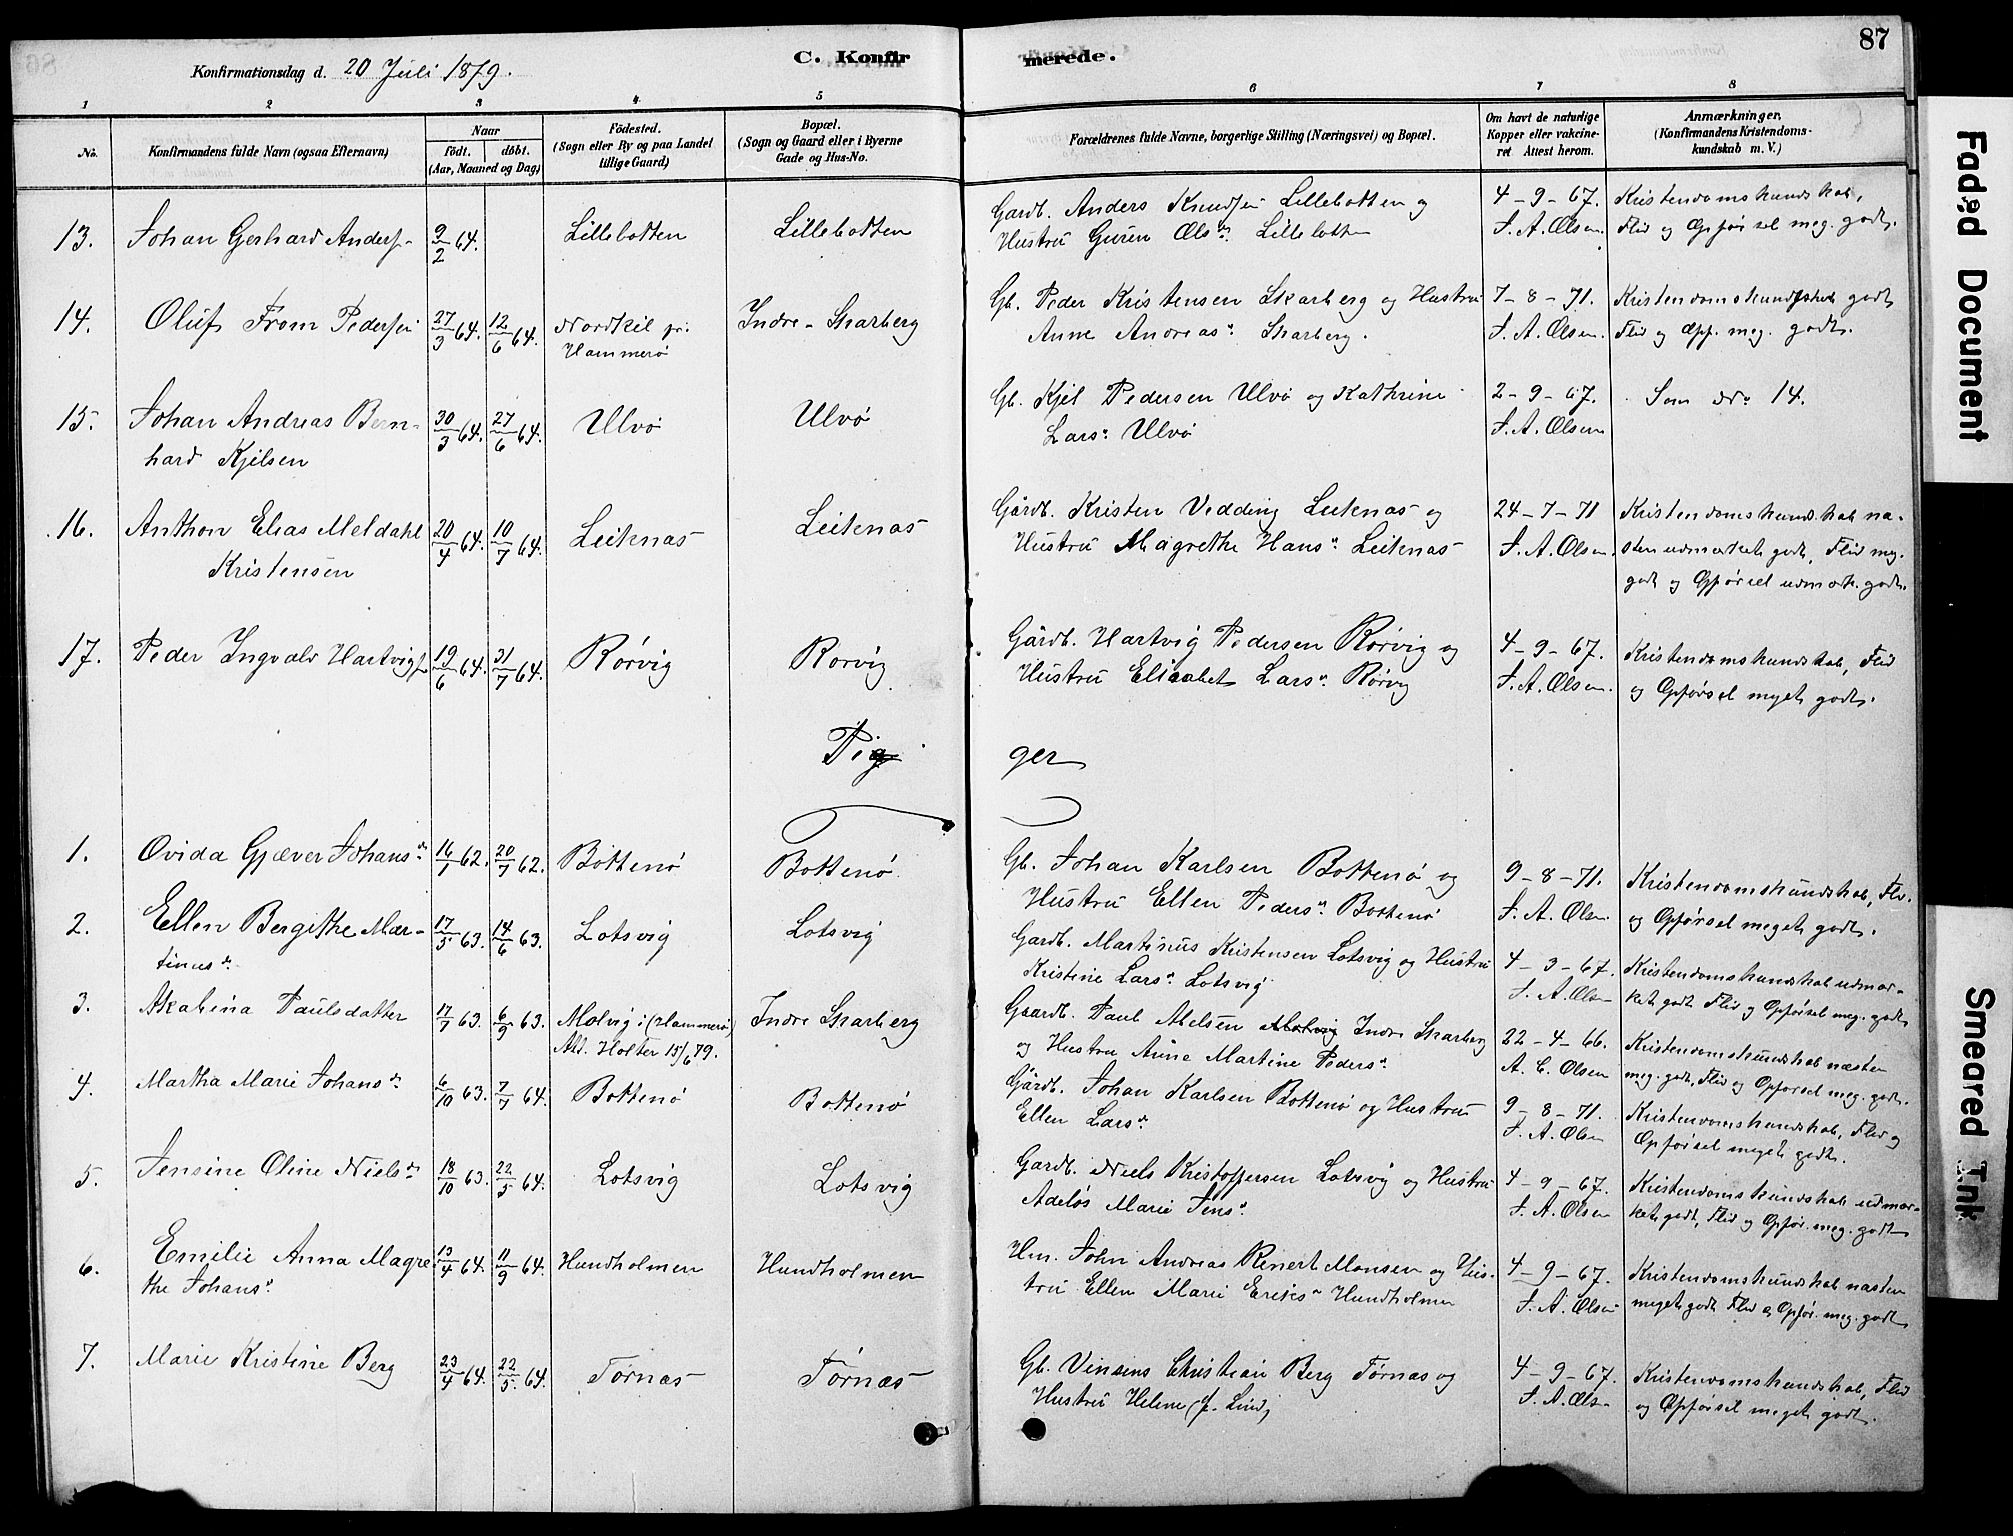 87
Konfirmationsdag d. 20 Juli 1879.
C. Konfirmerede.
1 2 3 4 5 6 7 8
No.
Konfirmandens fulde Navn (ogsaa Efternavn)
Naar
født. døbt.
(Aar, Maaned og Dag)
Födested.
(Sogn eller By og paa Landet
tillige Gaard)
Bopæl.
(Sogn og Gaard eller i Byerne
Gade og Hus-No.
Forældrenes fulde Navne, borgerlige Stilling (Næringsvei) og Bopæl.
Om havt de naturlige
Kopper eller vakcine-
ret Attest herom.
Anmærkninger.
(Konfirmandens Kristendoms-
kundskab m. V.)
13. Johan Gerhard Anders- 9/2 64. Lillebotten Lillebotten
Gardb. Anders Knudsen Lillebotten og
Hustru Guren Ols dr. Lillebotten
4-9-67.
J. A. Olsen.
Kristendomskundskab,
Flid og Opførsel meg. godt.
14. Oluf From Pedersen 27/3 64. 12/6 64. Nordkil pr. Hammerø Indre-Skarberg
Gb. Peder Kristensen Skarberg og Hustru
Anne Andreas dr. Skarberg.
7-8-71.
J. A. Olsen.
Kristendomskundskab godt
Flid og Opf. meg. godt.
15. Johan Andreas Bern-
hard Kjelsen 30/3 64. 27/6 64. Ulvø Ulvø
Gb. Kjel Pedersen Ulvø og Kathrine
Lars dr. Ulvø
2-9-67.
J. A. Olsen
Som No 14.
16. Anthon Elias Meldahl
Kristensen 20/4 64. 10/7 64. Leiknas Leiknas
Gårdb. Kristen Vedding Leiknas og
Hustru Magrethe Hans dr. Leiknas
24-7-71
J. A. Olsen.
Kristendomskundskab næ-
sten udmærket godt, Flid meg.
godt og Opførsel udmærk. godt.
17. Peder Ingvald Hartvigs 19/6 64. 31/7 64. Rørvig Rørvig
Gårdb. Hartvig Pedersen Rørvig og
Hustru Elisabet Lars dr. Rørvig
4-9-67.
J. A. Olsen.
Kristendomskundskab, Flid
og Opførsel meget godt.
Piger
1. Ovida Gjæver Johans dr. 16/1 62. 20/7 62. Bottenø Bottenø.
Gb. Johan Karlsen Bottenø og
Hustru Ellen Peders dr. Bottenø
9-8-71.
J. A. Olsen
Kristendomskundskab, Flid.
og Opførsel meget godt.
2. Ellen Bergithe Mar-
tinus dr. 17/5 63. 14/6 63. Lotsvig Lotsvig
Gardb. Martinus Kristensen Lotsvig og Hustru
Kristine Lars dr. Lotsvig
4-3-67.
J. A. Olsen
Kristendomskundskab udmær-
ket godt Flid og Opførsel meg. godt
3. Akabina Paulsdatter 17/7 63. 6/9 63. Molvig i (Hammerø) Indre Skarberg
Att. Holter 15/6 79.
Gaardb. Paul Abelsen Indre Skarberg
og Hustru Anne Martine Peders dr.
22-4-66.
A. C. Olsen
Kristendomskundskab næsten
meg. godt, Flid og Opførsel meg. godt.
4. Martha Marie Johans dr. 6/10 63. 7/7 64. Bottenø Bottenø
Gårdb. Johan Karlsen Bottenø og Hustru
Ellen Lars dr.
9-8-71.
J. A. Olsen
Kristendomskundskab, Flid og
Opførsel meget godt.
5. Jensine Oline Niels dr. 18/10 63. 22/5 64. Lotsvig Lotsvig
Gardb. Niels Kristoffersen Lotsvig og Hustru
Adeløs Marie Jens dr.
4-9-67.
J. A. Olsen
Kristendomskundskab udmær-
ket godt, Flid og Opfør. meg. godt
6. Emilie Anna Magre-
the Johans dr. 13/4 64. 11/9 64. Hundholmen Hundholmen
Hm. John Andreas Renert Monsen og Hus-
tru Ellen Marie Eriks dr Hundholmen
4-9-67.
J. A. Olsen
Kristendomskundskab næsten
meget godt Flid og Opfør. meg. godt
7. Marie Kristine Berg 23/4 64. 22/5 64. Tørnæs Tørnæs
Gb. Vinsens Christian Berg Tørnæs og
Hustru Helene (f. Lind)
4-9-67.
J. A. Ols-
Kristendomskundskab, Flid
og Opførsel meget godt.
Faded Document
Smeared Ink